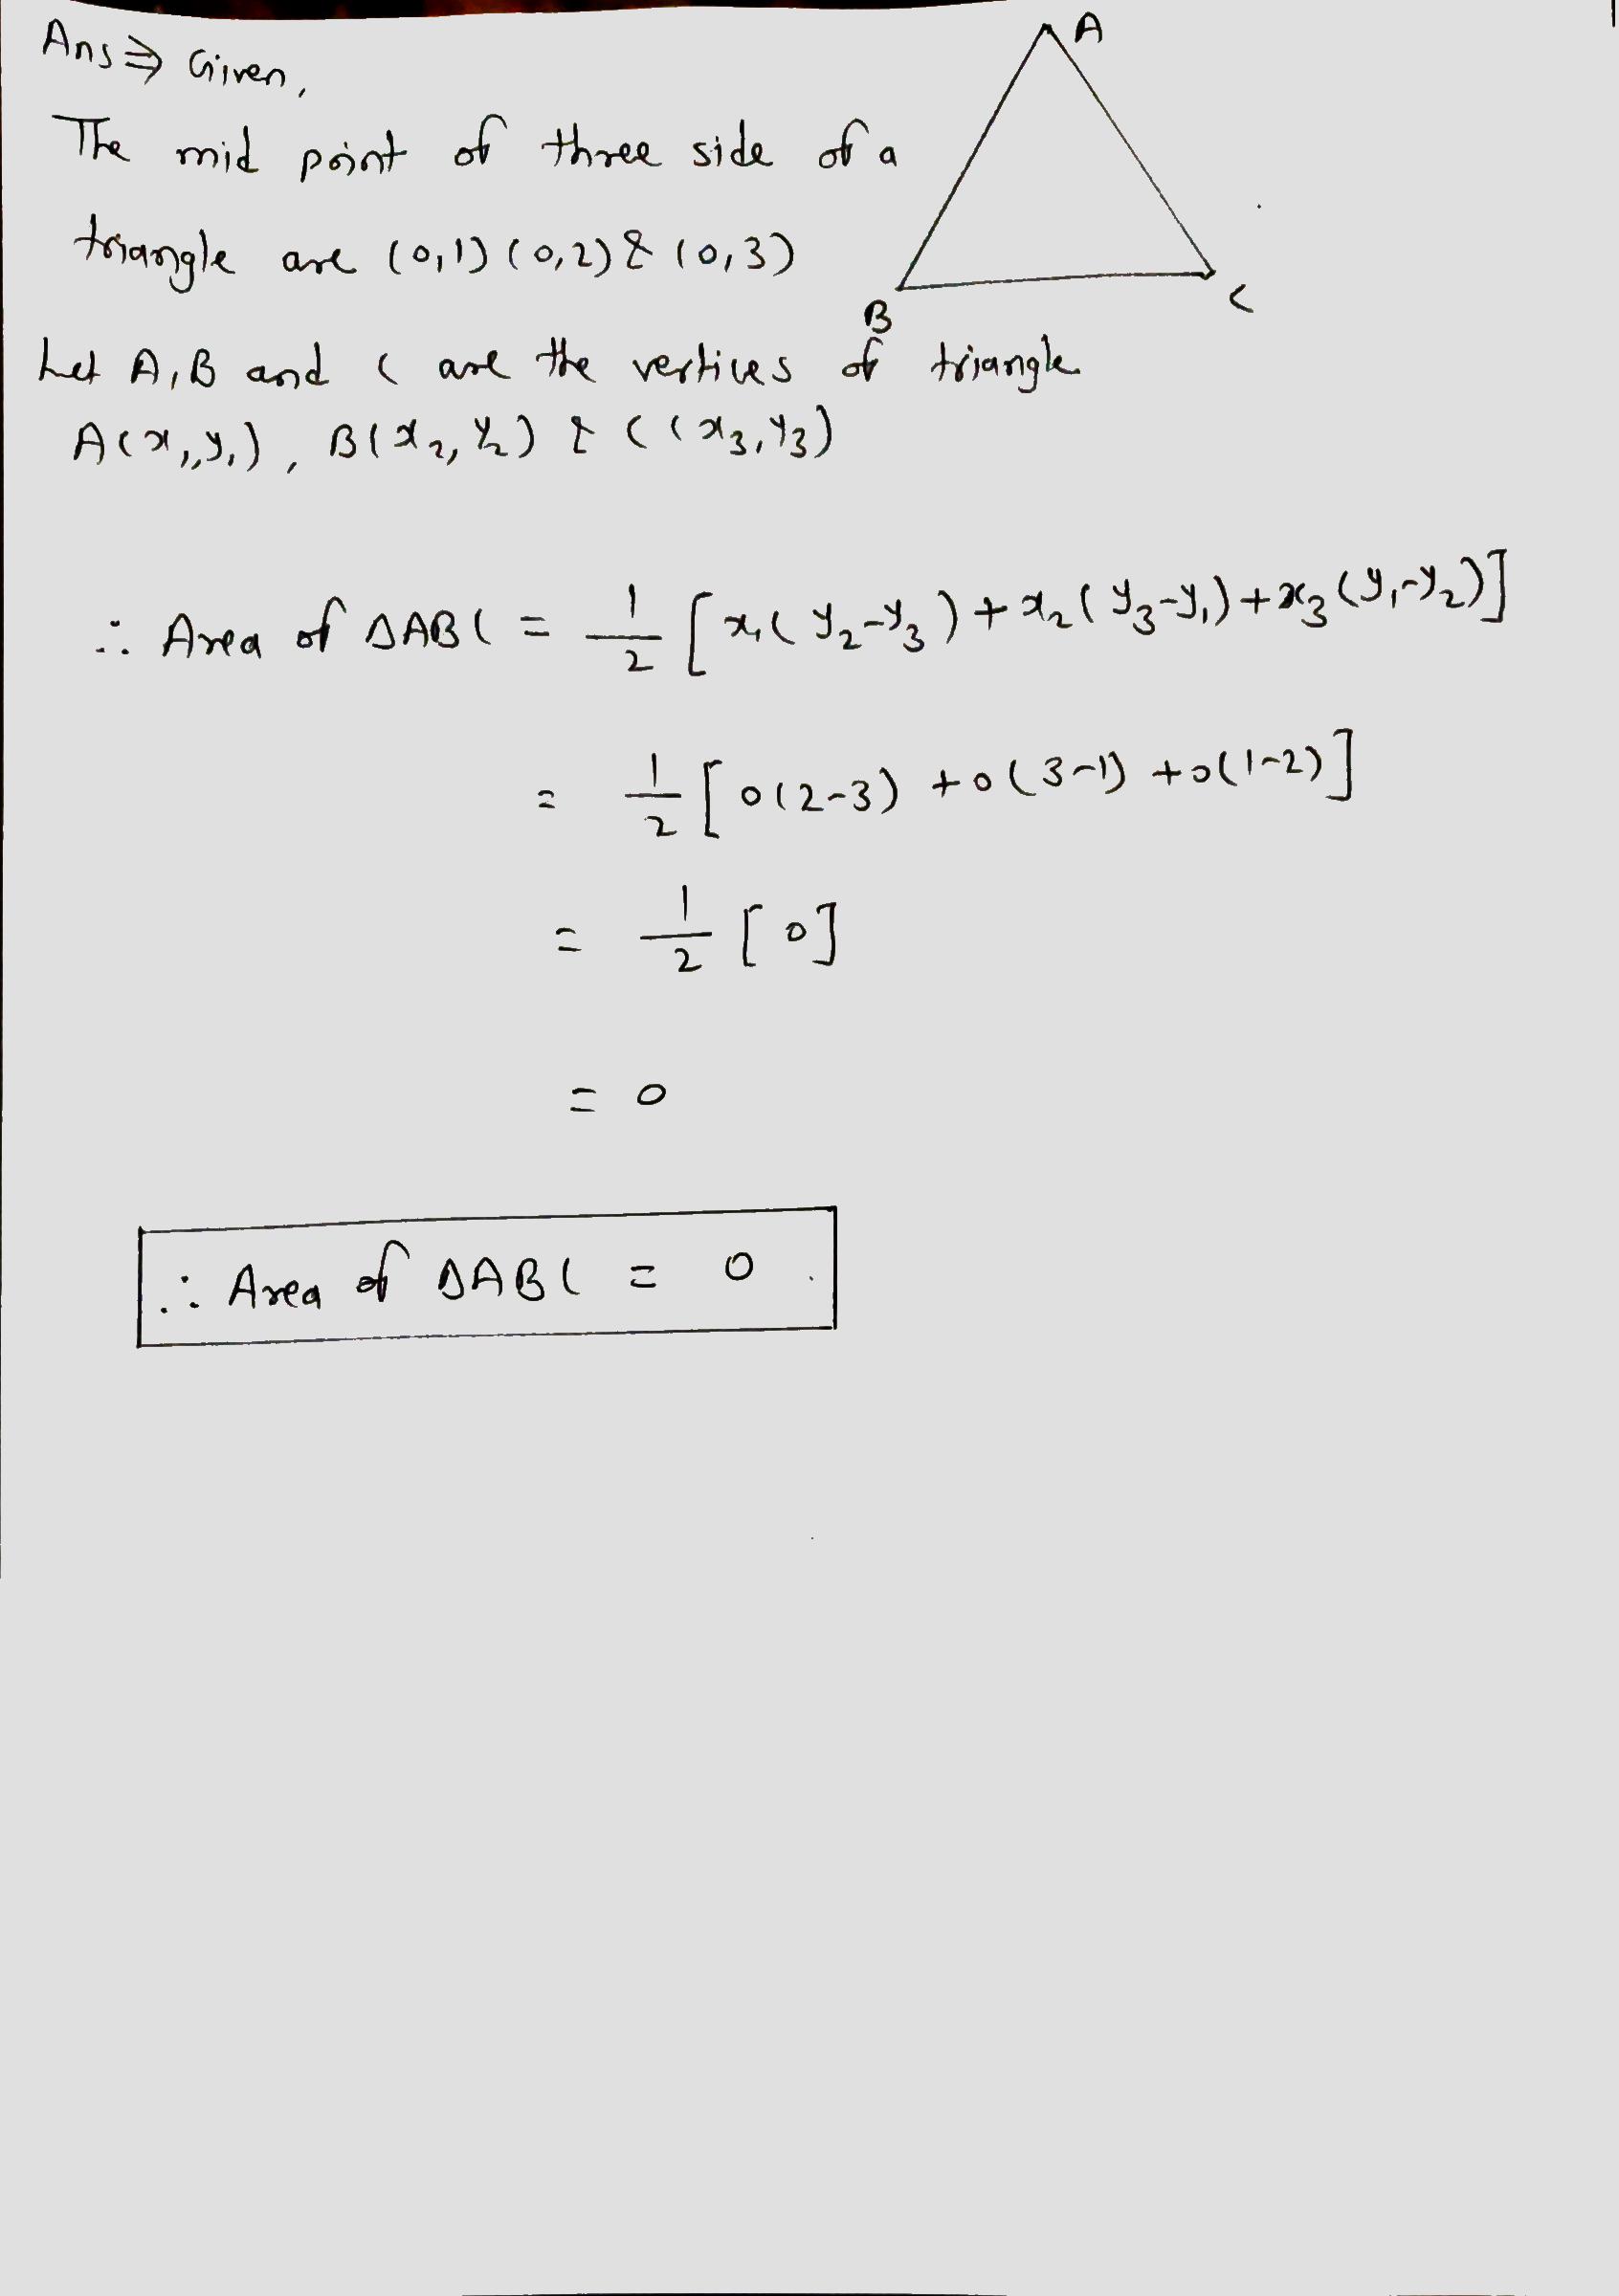 Ans ⇒ Given,
A
The mid point of three side of a
triangle are (0,1) (0,2) & (0,3)
B
C
Let A, B and C are the vertices of triangle
A(x₁,y₁), B(x₂,y₂) & C(x₃,y₃)
∴ Area of ΔABC = 1/2 [x₁(y₂-y₃) + x₂(y₃-y₁) + x₃(y₁-y₂)]
= 1/2 [0(2-3) + 0(3-1) + 0(1-2)]
= 1/2 [0]
= 0
∴ Area of ΔABC = 0.